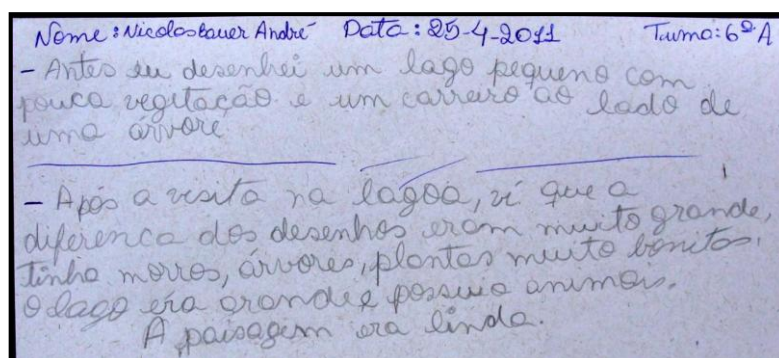 Nome: Nicolas Lauer André Data: 25-4-2011 Turma: 6ª A
- Antes eu desenhei um lago pequeno com
pouca vegetação e um carreiro ao lado de
uma árvore
- Após a visita na lagoa, vi que a
diferenca dos desenhos eram muito grande,
tinha morros, árvores, plantas muito bonitas.
O lago era grande e possuia animais.
A paisagem era linda.